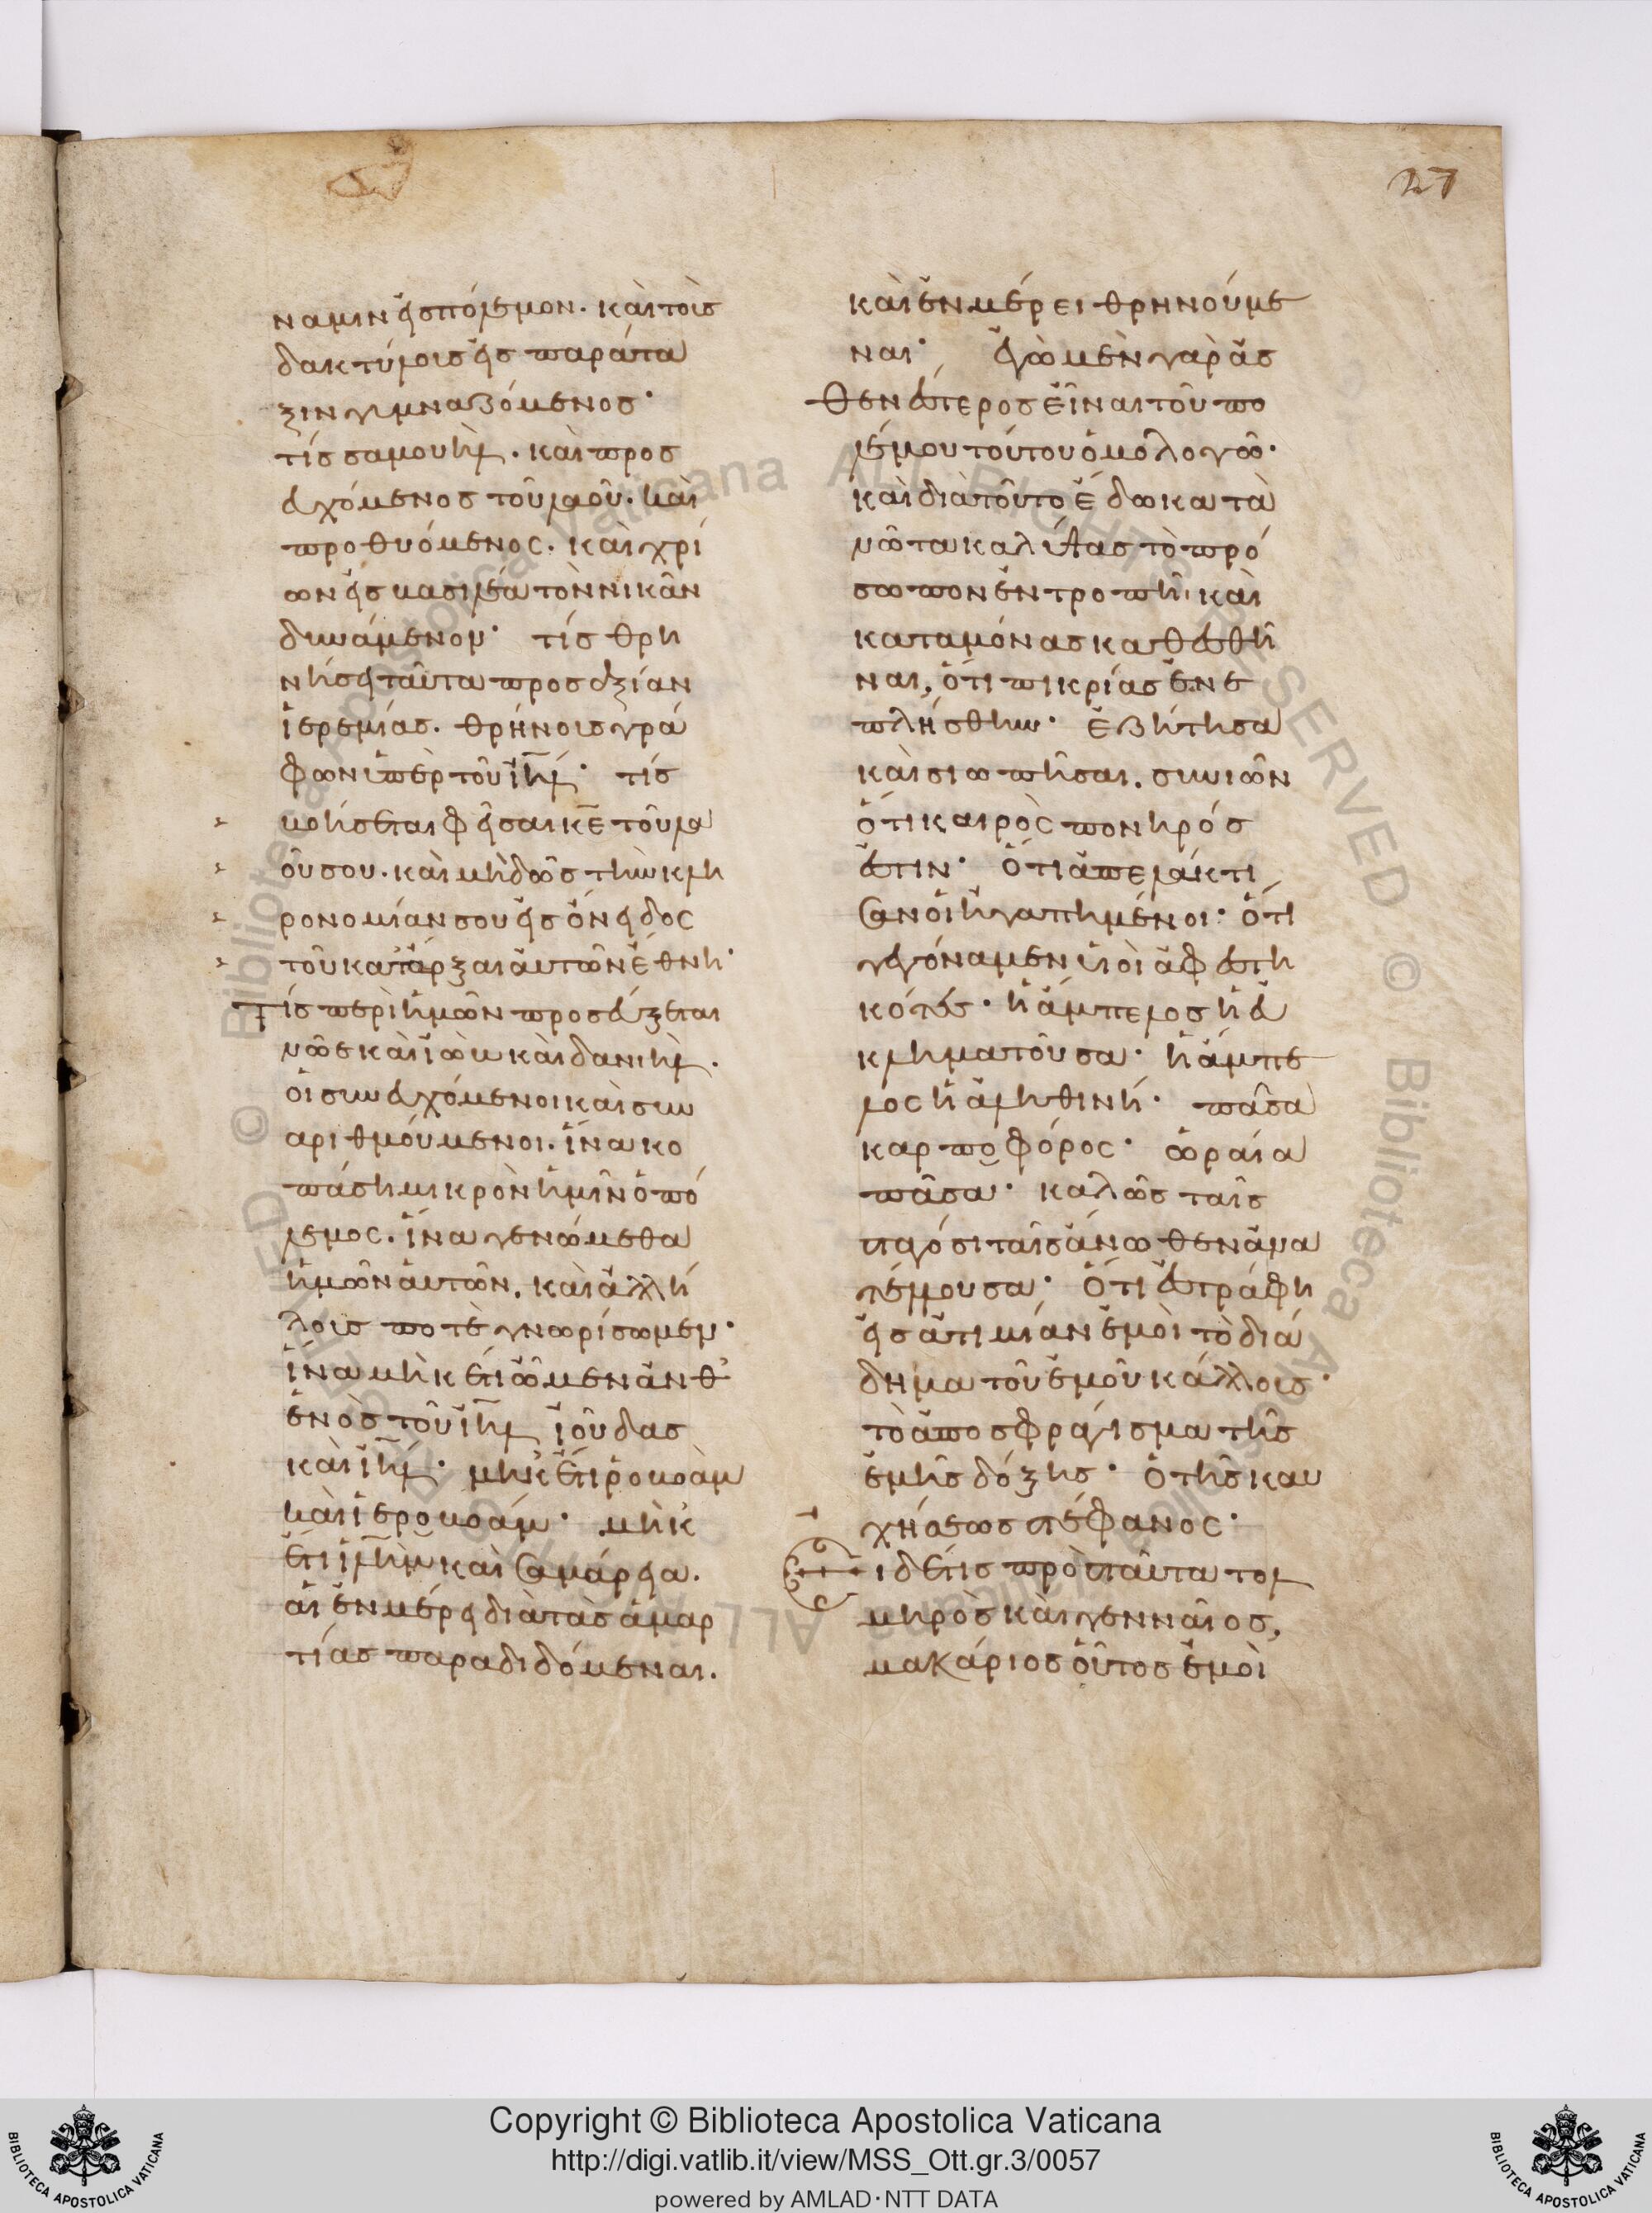 27
ναμιν εἰς πόλεμον· καὶ τοῖς
δακτύλοις εἰς παράτα
ξιν γυμναζόμενος·
τίς σαμουὴλ· καὶ προσ
ευχόμενος τοῦ λαοῦ· καὶ
προθυόμενος· καὶ χρί
ων εἰς βασιλέα τὸν νικᾶν
δυνάμενον· τίς θρη
νήσει ταῦτα πρὸς ἀξίαν
ἱερεμίας· θρήνοις γρά
φων ὑπὲρ τοῦ ἰηλ· τίς
βοήσεται φεῖσαι κε τοῦ λα
οῦ σου· καὶ μὴ δῷς τὴν κλη
ρονομίαν σου εἰς ὄνειδος
τοῦ κατάρξαι αὐτῶν ἔθνη·
Τίς περὶ ἡμῶν προσεύξεται
νῶε καὶ ἰὼβ καὶ δανιὴλ·
οἱ συνευχόμενοι καὶ συν
αριθμούμενοι· ἵνα κο
πάσῃ μικρὸν ἡμῖν ὁ πό
λεμος· ἵνα γενώμεθα
ἡμῶν αὐτῶν, καὶ ἀλλή
λοις ποτὲ γνωρίσωμεν·
ἵνα μὴκέτι ὦμεν ἀνθ'
ἑνὸς τοῦ ἰηλ ἰούδας
καὶ ἰηλ· μηκέτι ῥοβοὰμ
καὶ ἱεροβοάμ· μὴκ
έτι ἰλὴμ καὶ σαμάρεια·
αἱ ἐν μέρει διὰ τὰς ἁμαρ
τίας παραδιδόμεναι·
καὶ ἐν μέρει θρηνούμε
ναι· ἐγὼ μὲν γὰρ ἀσ
θενέστερος εἶναι τοῦ πο
λέμου τούτου ὁμολογῶ·
καὶ διὰ τοῦτο ἔδωκα τὰ
νῶτα καλύψας τὸ πρό
σωπον ἐντροπῇ· καὶ
καταμόνας καθεσθῆ
ναι, ὅτι πικρίας ἐνε
πλήσθην· ἐζήτησα
καὶ σιωπῆσαι· συνιῶν
ὅτι καιρὸς πονηρός
ἐστιν· ὅτι ἀπελάκτι
σαν οἱ ἠγαπημένοι· ὅτι
γεγόναμεν υἱοὶ ἀφεστη
κότες· ἡ ἄμπελος ἡ εὐ
κληματοῦσα· ἡ ἄμπε
λος ἡ ἀληθινή· πᾶσα
καρποφόρος· ὡραία
πᾶσα· καλῶς ταῖς
πηγόσι ταῖς ἄνωθεν ἀνα
τέλλουσα· ὅτι ἐστράφη
εἰς ἀτιμίαν ἐμοὶ τὸ διά
δημα τοῦ ἐμοῦ κάλλους·
τὸ ἀποσφράγισμα τῆς
ἐμῆς δόξης· ὁ τῆς καυ
χήσεως στέφανος·
Εἰ δέτις πρὸς ταῦτα τολ
μηρὸς καὶ γενναῖος,
μακάριος οὗτος ἐμοὶ
Copyright © Biblioteca Apostolica Vaticana
http://digi.vatlib.it/view/MSS_Ott.gr.3/0057
powered by AMLAD·NTT DATA